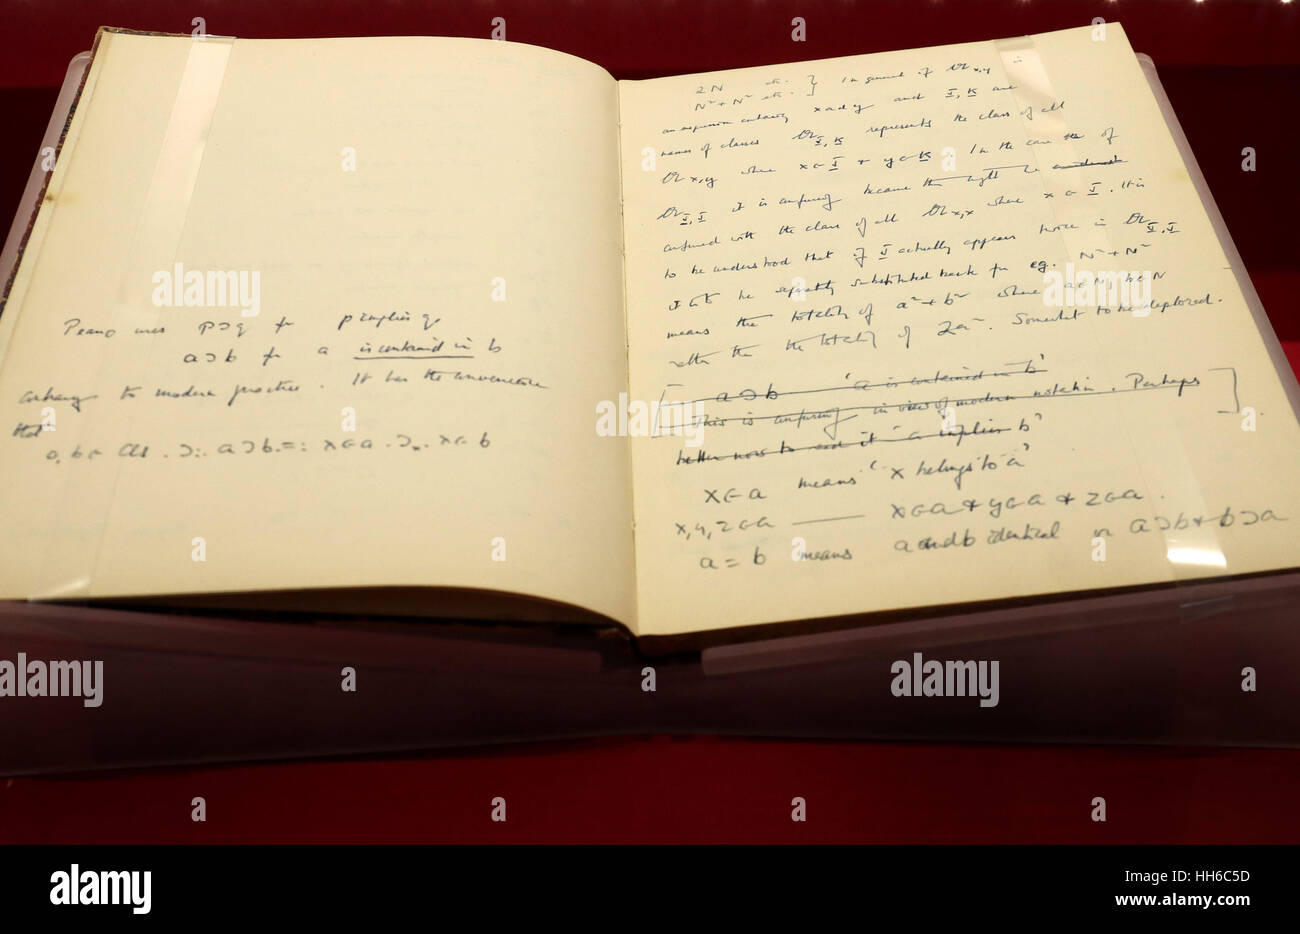 Peano uses p⊃q for p implies q,
a⊃b for a is contained in b
contrary to modern practice. It has the convenience
that
a, b ∈ Cls . ⊃:. a⊃b. =: x∈a . ⊃x . x∈b
2N etc. } In general if 𝔄x,y is
N²+N² etc. }
an expression containing x and y and X, K are
names of classes represents the class of all
x,y where x∈ + y∈K. In the case of
it is confusing because this might be
confused with the class of all x,x where x∈ . It is
to be understood that if actually appears twice in
it is to be separately substituted for e.g. N²+N²
means the totality of a²+b² where a∈N, b∈N
rather than the totality of 2a². Somewhat to be deplored.
[ a⊃b 'a is contained in b'
This is confusing in view of modern notation. Perhaps ]
better now to read it 'a implies b'
x∈a means 'x belongs to a'
x,y,z∈a —— x∈a + y∈a + z∈a.
a = b means a and b identical or a⊃b + b⊃a
alamy
Image ID: HH6C5D
www.alamy.com